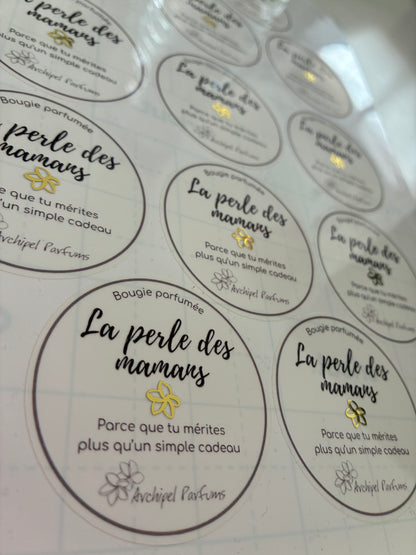 La perle des
mamans
Parce que tu mérites
plus qu'un simple cadeau
Archipel Parfums
La perle des
mamans
La perle des
mamans
Parce que tu mérites
plus qu'un simple cadeau
Archipel Parfums
La perle des
mamans
Bougie parfumée
La perle des
mamans
que tu mérites
un simple cadeau
Archipel Parfums
Bougie parfumée
La perle des
mamans
Parce que tu mérites
plus qu'un simple cadeau
Archipel Parfums
Bougie parfumée
La perle des
mamans
Parce que tu mérites
plus qu'un simple cadeau
Archipel Parfums
Bougie parfumée
La perle des
mamans
Parce que tu mérites
plus qu'un simple cadeau
Archipel Parfums
Bougie parfumée
La perle des
mamans
Parce que tu mérites
plus qu'un simple cadeau
Archipel Parfums